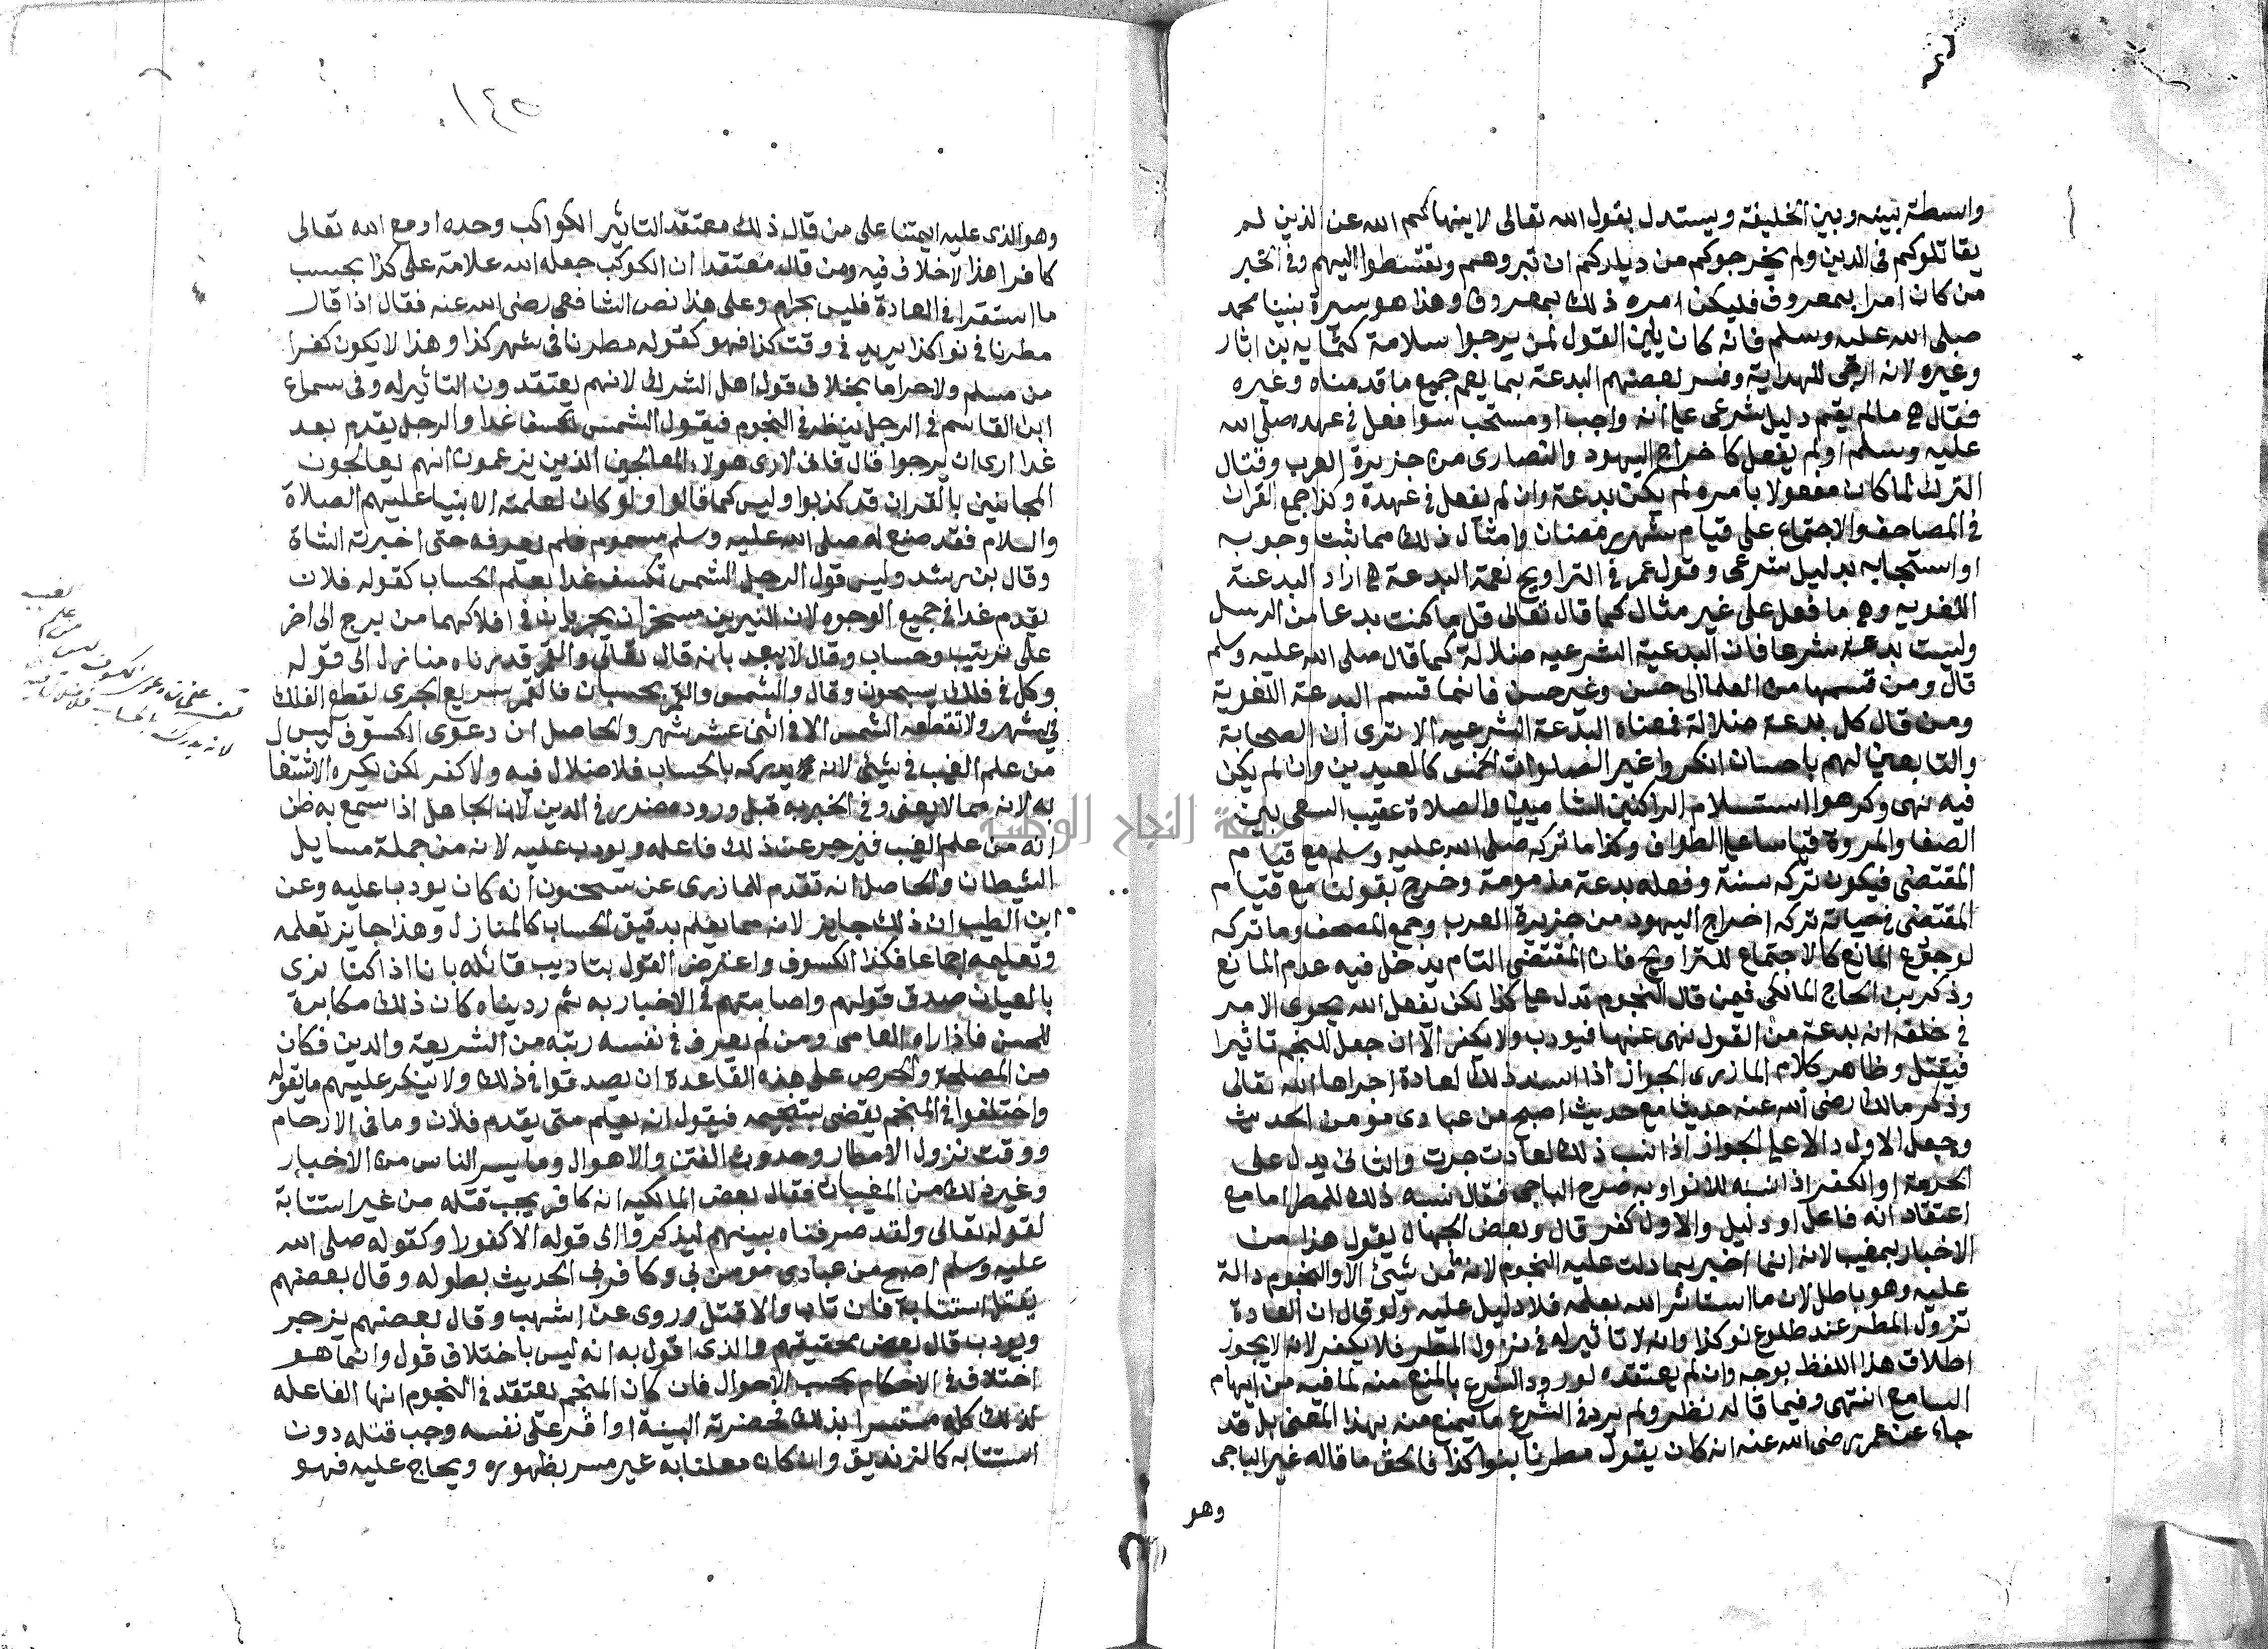 واسطة بينه وبين الخليفة ويستدل بقول الله تعالى لا ينهاكم الله عن الذين لم
يقاتلوكم فى الدين ولم يخرجوكم من دياركم ان تبروهم وتقسطوا اليهم وفى الخبر
من كان امرا بمعروف فليكن امره ذلك بمعروف وهذا هو سيرة نبينا محمد
صلى الله عليه وسلم فانه كان يلين القول لمن يرجوا سلامة كثمامة بن اثار
وغيره لانه ارجى للهداية وفسر بعضهم البدعة بما يعم جميع ما قدمناه وغيره
فقال هى ما لم يقم دليل شرعى على انه واجب او مستحب سوا فعل فى عهده صلى الله
عليه وسلم او لم يفعل كاخراج اليهود والنصارى من جزيرة العرب وقتال
الترك لما كان مفعولا بامره لم يكن بدعة وان لم يفعل فى عهدة وكذا جمع القران
فى المصاحف والاجتماع على قيام شهر رمضان وامثال ذلك مما ثبت وجوبه
او استحبابه بدليل شرعى وقول عمر فى التراويح نعمة البدعة هى اراد البدعة
اللغويه وهى ما فعل على غير مثال كما قال تعالى قل ما كنت بدعا من الرسل
وليست بدعة شرعا فان البدعة الشرعيه ضلالة كما قال صلى الله عليه وسلم
قال ومن قسمها من العلما الى حسن وغير حسن فانما قسم البدعة اللغوية
ومن قال كل بدعة ضلالة فمعناه البدعة الشرعيه الا ترى ان الصحابة
والتابعين لهم باحسان انكروا غير الصلوات الخمس كالعيدين وان لم يكن
فيه نهى وكرهوا استلام الركنين الشاميين والصلاة عقيب السعى بين
الصفا والمروة قياسا على الطواف وكذا ما تركه صلى الله عليه وسلم مع قيام
المقتضى فيكون تركه سنة وفعله بدعة مذمومة وخرج بقولنا مع قيام
المقتضى فى حياته تركه اخراج اليهود من جزيرة العرب وجمع المصحف وما تركه
لوجود المانع كالاجتماع للتراويح فان المقتضى التام يدخل فيه عدم المانع
وذكر بن الحاج المالكى فيمن قال النجوم تدل على كذا لكن يفعل الله يجرى الامر
فى خلقه انه بدعة من القول نهى عنها فيودب ولا يكفر الا ان جعل للنجم تاثيرا
فيقتل وظاهر كلام المازرى الجواز اذا اسند ذلك لعادة اجراها الله تعالى
وذكر مالك رضى الله عنه حديثا مع حديث اصبح من عبادى مومن الحديث
وجعل الاول دالا على الجواز اذا نسب ذلك لعادت جرت والثانى يدل على
الحرمة او الكفر اذا نسبه للانوا وبه صرح الباجى فقال نسبه ذلك للمطر اما مع
اعتقاد انه فاعل او دليل والاول كفر قال وبعض الجهال يقول هذا من
الاخبار بمغيب لانه انما اخبر بما دلت عليه النجوم لانه ما من شيئ الا والنجوم دالة
عليه وهو باطل لان ما استاثر الله بعلمه فلا دليل عليه ولو قال ان العادة
نزول المطر عند طلوع نو كذا وانه لا تاثير له فى نزول المطر فلا يكفر لانه لا يجوز
اطلاق هذا اللفظ بوجه وان لم يعتقده لورود الشرع بالمنع منه لما فيه من ايهام
السامع انتهى وفيما قاله نظر ولم يرد فى الشرع ما يمنع منه بهذا المعنى بل قد
جاء عن عمر رضى الله عنه انه كان يقول مطرنا بنوا كذا فالحق ما قاله غير الباجى
وهو
١٤٥
وهو الذى عليه ايمتنا على من قال ذلك معتقد التاثير الكواكب وحده او مع الله تعالى
كافرا هذا لا خلاف فيه ومن قال معتقدا ان الكوكب جعله الله علامة على كذا بحسب
ما استقرا فى العادة فليس بحرام وعلى هذا نص الشافعى رضى الله عنه فقال اذا قال
مطرنا فى نوا كذا يريد فى وقت كذا فهو كقوله مطرنا فى شهر كذا وهذا لا يكون كفرا
من مسلم ولا حراما بخلاف قول اهل الشرك لانهم يعتقدون التاثير له وفى سماع
ابن القاسم فى الرجل ينظر فى النجوم فيقول الشمس تكسف غدا والرجل يقدم بعد
غدا ارى ان يرجوا قال فانى لارى هولاء المعالجين الذين يزعمون انهم يعالجون
المجانين بالقران قد كذبوا وليس كما قالوا ولو كان لعلمته الانبيا عليهم الصلاة
والسلام فقد صنع له صلى الله عليه وسلم مسموم فلم يعرفه حتى اخبرته الشاة
وقال بن رشد وليس قول الرجل الشمس تكسف غدا بعلم الحساب كقوله فلان
يقدم غدا فى جميع الوجوه لان النيرين مسخران يجريان فى افلاكهما من برج الى اخر
على ترتيب وحساب وقال لا يبعد بانه قال تعالى والقمر قدرناه منازل الى قوله
وكل فى فلك يسبحون وقال والشمس والقمر بحسبان فالقمر سريع الجرى يقطع الفلك
فى شهر ولا تقطعه الشمس الا فى اثنى عشر شهر والحاصل ان دعوى الكسوف ليس ل
من علم الغيب فى شيئ لانه يدركه بالحساب فلا ضلال فيه ولا كفر لكن يكره الاشتغا
به لانه مما لا يعنى وفى الخبر به قبل وروده ضرر فى الدين لان الجاهل اذا سمع به ظن
انه من علم الغيب فيزجر عن ذلك فاعله ويودب عليه لانه من جملة مسايل
الشيطان والحاصل انه تقدم للمازرى عن سحنون انه كان يودب عليه وعن
ابن الطيب ان ذلك جايز لانه مما يعلم بدقيق الحساب كالمنازل وهذا جايز تعلمه
وتعليمه اجماعا فكذا الكسوف واعترض القول بتاديب قائله بانا اذا كنا نرى
بالعيان صدق قولهم واصابتهم فى الاخبار به ثم رديناه كان ذلك مكابرة
للحس فاذا راه العامى ومن لم يعرف فى نفسه رتبه من الشريعة والدين فكان
من المصلحة والحرص على هذه القاعدة ان يصدقوا فى ذلك ولا ينكر عليهم ما يقوله
واختلفوا فى المنجم يقضى بتنجيمه فيقول انه يعلم متى يقدم فلان وما فى الارحام
ووقت نزول الامطار وحدوث الفتن والاهوال وما يسر الناس من الاخبار
وغير ذلك من المغيبات فقال بعض المالكيه انه كافر يجب قتله من غير استتابة
لقوله تعالى ولقد صرفناه بينهم ليذكروا الى قوله الا كفورا وكقوله صلى الله
عليه وسلم اصبح من عبادى مومن بى وكافر بى الحديث بطوله وقال بعضهم
يقتل استتابة فان تاب والا قتل وروى عن اشهب وقال بعضهم يزجر
ويودب قال بعض محققيهم والذى اقول به انه ليس باختلاف قول وانما هو
اختلاف فى الاحكام بحسب الاحوال فان كان المنجم يعتقد فى النجوم انها الفاعله
لذلك كله مستسرا بذلك فحضرته البينة او اقر على نفسه وجب قتله دون
استتابه كالزنديق وان كان معلنا به غير مسر بظهوره ويحاج عليه فهو
جامعة النجاح الوطنية